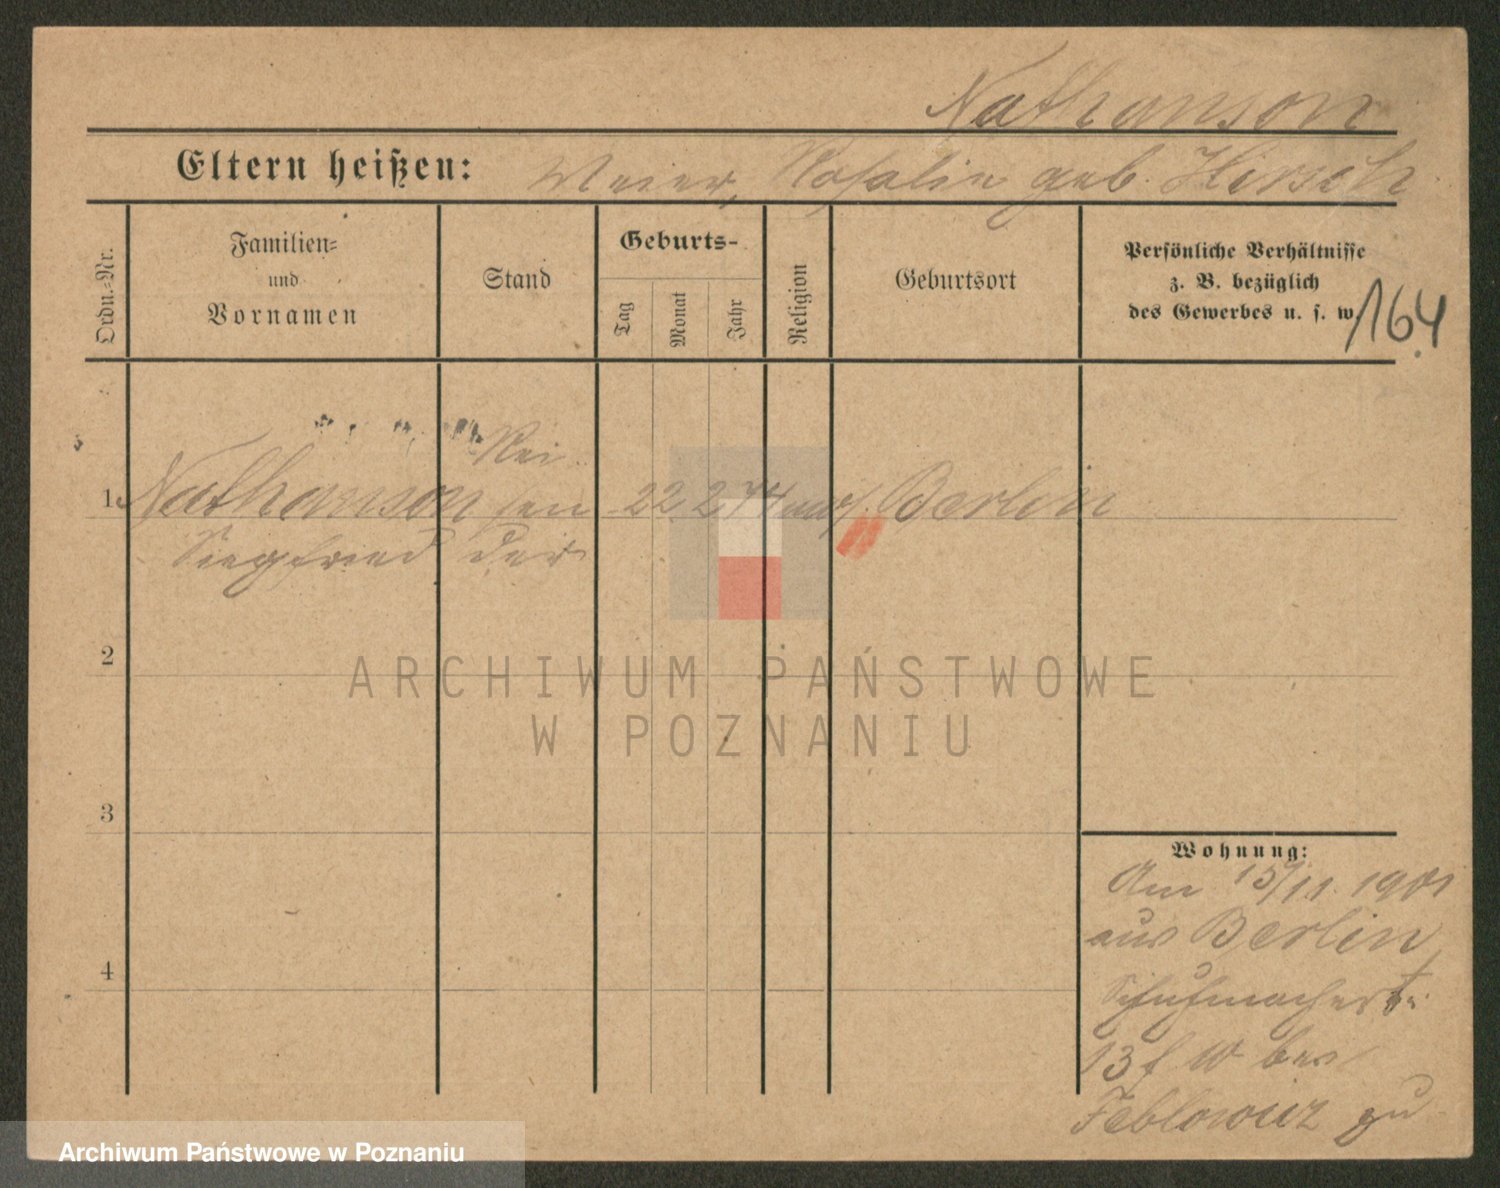 Nathanson
Eltern heißen: Meier, Rosalie geb. Hirsch
Ordn.-Nr.
Familien-
und
Vornamen
Stand
Geburts-
Tag
Monat
Jahr
Religion
Geburtsort
Persönliche Verhältnisse
z. B. bezüglich
des Gewerbes u. s. w.
164
Rei
1 Nathanson sen 22 2 74 mos. Berlin
Siegfried der
2
ARCHIWUM PAŃSTWOWE
W POZNANIU
3
Wohnung:
Am 15/11. 1901
aus Berlin
4
Schuhmacherstr.
13 f W bei
zu
Archiwum Państwowe w Poznaniu